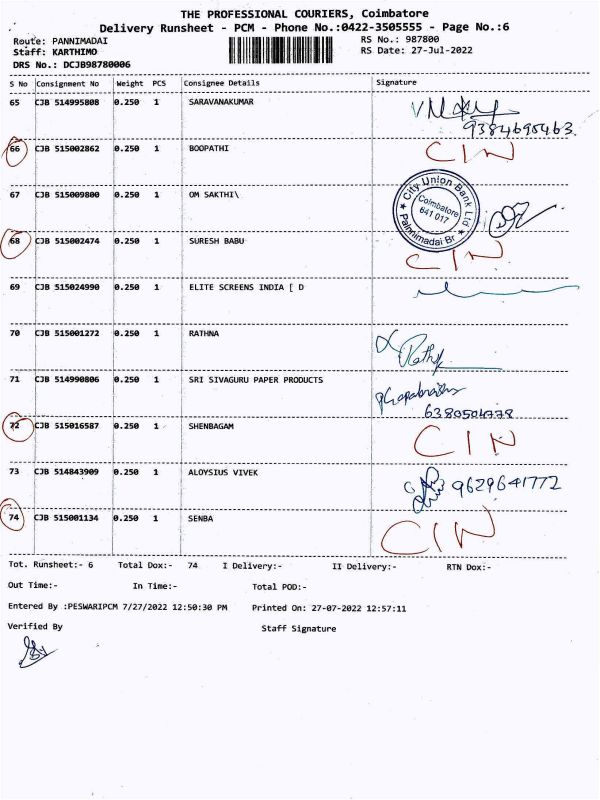 THE PROFESSIONAL COURIERS, Coimbatore
Delivery Runsheet - PCM - Phone No.:0422-3505555 - Page No.:6
Route: PANNIMADAI RS No.: 987800
Staff: KARTHIMO RS Date: 27-Jul-2022
DRS No.: DCJB98780006
S No Consignment No Weight PCS Consignee Details Signature
65 CJB 514995808 0.250 1 SARAVANAKUMAR
9384690463
66 CJB 515002862 0.250 1 BOOPATHI CIN
67 CJB 515009800 0.250 1 OM SAKTHI\
City Union Bank Ltd
Coimbatore
641 017
Pannimadai Br
68 CJB 515002474 0.250 1 SURESH BABU CIN
69 CJB 515024990 0.250 1 ELITE SCREENS INDIA [ D
70 CJB 515001272 0.250 1 RATHNA
71 CJB 514990806 0.250 1 SRI SIVAGURU PAPER PRODUCTS
72 CJB 515016587 0.250 1 SHENBAGAM CIN
73 CJB 514843909 0.250 1 ALOYSIUS VIVEK 9629641772
74 CJB 515001134 0.250 1 SENBA CIN
Tot. Runsheet:- 6 Total Dox:- 74 I Delivery:- II Delivery:- RTN Dox:-
Out Time:- In Time:- Total POD:-
Entered By :PESWARIPCM 7/27/2022 12:50:30 PM Printed On: 27-07-2022 12:57:11
Verified By Staff Signature